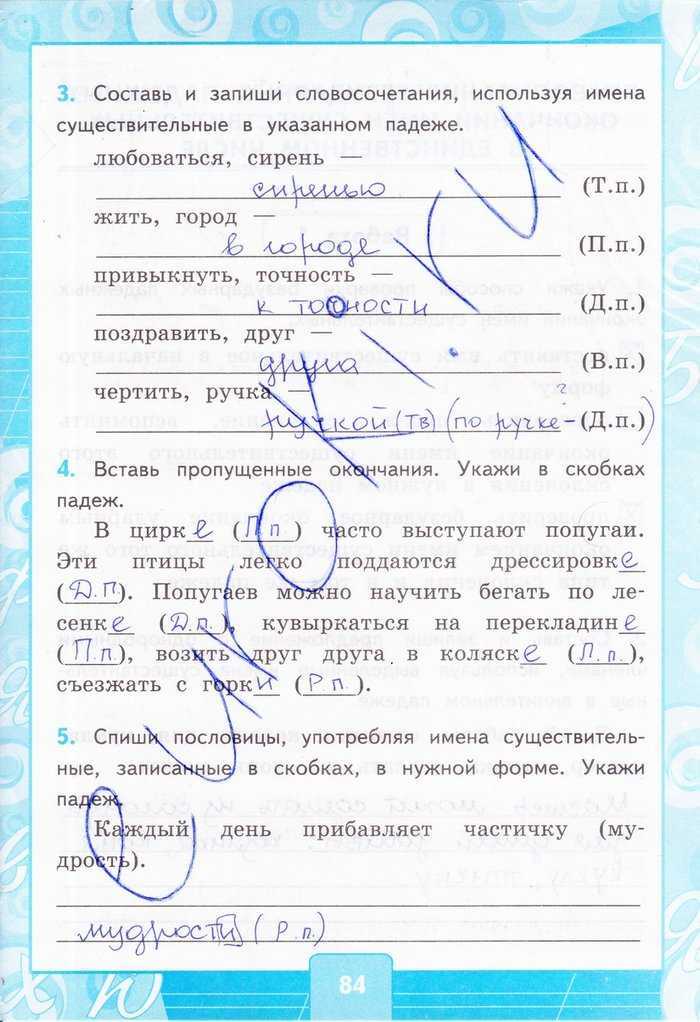 3. Составь и запиши словосочетания, используя имена
существительные в указанном падеже.
любоваться, сирень —
сиренью (Т.п.)
жить, город —
в городе (П.п.)
привыкнуть, точность —
к точности (Д.п.)
поздравить, друг —
друга (В.п.)
чертить, ручка — ?
ручкой (ТВ) (по ручке- (Д.п.))
4. Вставь пропущенные окончания. Укажи в скобках
падеж.
В цирке (П.п.) часто выступают попугаи.
Эти птицы легко поддаются дрессировке
(Д.п.). Попугаев можно научить бегать по ле-
сенке (Д.п.), кувыркаться на перекладине
(П.п.), возить друг друга в коляске (П.п.),
съезжать с горки (Р.п.).
5. Спиши пословицы, употребляя имена существитель-
ные, записанные в скобках, в нужной форме. Укажи
падеж.
Каждый день прибавляет частичку (му-
дрость).
мудрости (Р.п.)
84